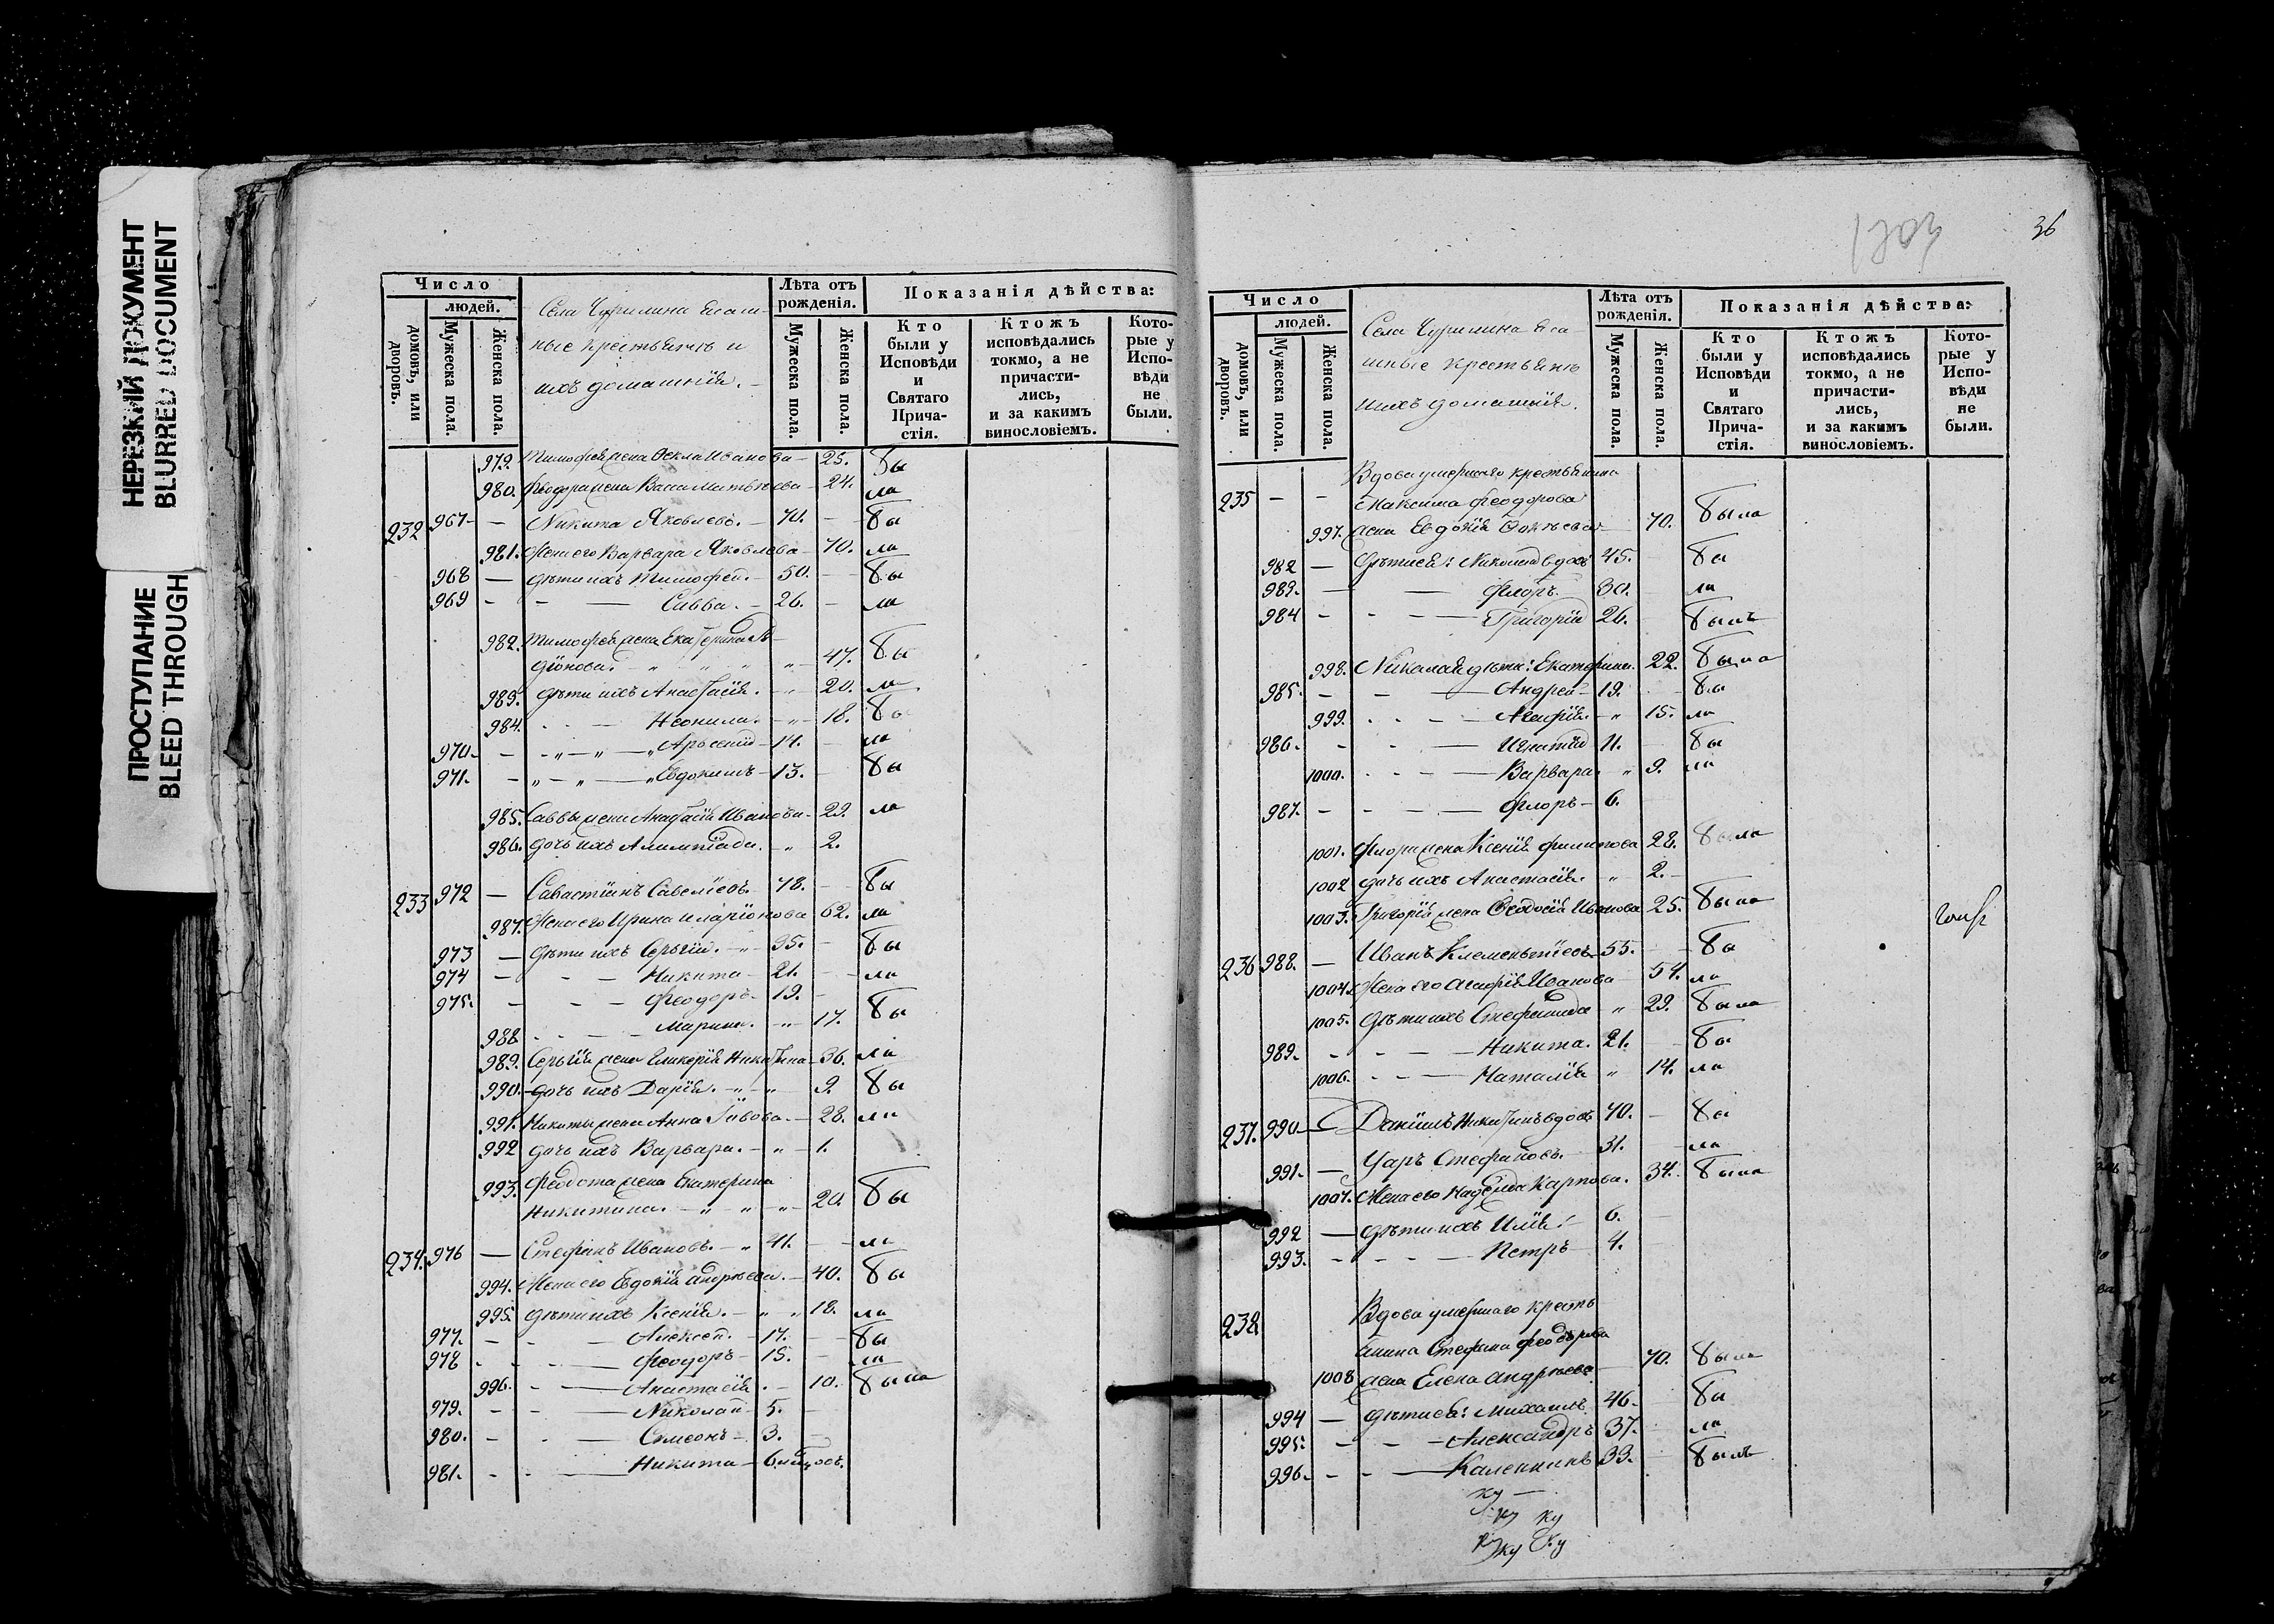 НЕРЕЗКИЙ ДОКУМЕНТ
BLURRED DOCUMENT
ПРОСТУПАНИЕ
BLEED THROUGH
Число
людей.
домовъ, или дворовъ.
Мужеска пола.
Женска пола.
Села Чурилина
крестьяне и
ихъ домашнія.
Лѣта отъ рожденія.
Мужеска пола.
Женска пола.
Показанія дѣйства:
Кто были у Исповѣди и Святаго Прича-стія.
Ктожъ исповѣдались токмо, а не причасти-лись, и за какимъ винословіемъ.
Кото-рые у Испо-вѣди не были.
979. Тимофея жена Ѳекла Иванова — 25. бы
980. Феодора жена 24. ла
232 967 — Никита Яковлевъ. — 70. — бы
981. Жена его Варвара Яковлева — 70. ла
968 — дѣти ихъ Тимофей. — 50. — бы
969 — Савва. — 26. — ла
982. Тимофея жена Екатерина
47. бы
983. дѣти ихъ Анастасія. — 20. ла
984. — Неонила. — 18. бы
970. — Арсеній — 14. — ла
971. — Евдокимъ — 13. — бы
985. Саввы жена Анастасія Иванова — 23. ла
986. дочь ихъ Алимпіада. — 2.
233 972 — Савастіанъ Савеліевъ — 78. — бы
987. Жена его Ирина Иларіонова 62. ла
973 — дѣти ихъ Сергій. — 35. — бы
974 — Никита — 21. — ла
975. — Феодоръ — 19. —
988 — Марина. — 17. бы
989. Сергія жена Гликерія Никитина — 36. ла
990. дочь ихъ Дарія. — 9. бы
991. Никиты жена Анна — 28. ла
992 дочь ихъ Варвара. — 1.
993. Феодота жена Екатерина
Никитина. — 20. бы
234. 976 — Стефанъ Ивановъ. — 41. — ла
994. Жена его Евдокія Андреева. — 40. бы
995. дѣти ихъ Ксенія. — 18. ла
977. — Алексей. — 17. — бы
978 — Феодоръ — 15. — ла
996. — Анастасія. — 10. была
979. — Николай — 5. —
980. — Симеонъ — 3. —
981. — Никита — 6.
36
Число
людей.
домовъ, или дворовъ.
Мужеска пола.
Женска пола.
Села Чурилина
крестьяне
и ихъ домашнія.
Лѣта отъ рожденія.
Мужеска пола.
Женска пола.
Показанія дѣйства:
Кто были у Исповѣди и Святаго Прича-стія.
Ктожъ исповѣдались токмо, а не причасти-лись, и за какимъ винословіемъ.
Кото-рые у Испо-вѣди не были.
Вдова умершаго крестьянина
235 — — Максима Феодорова
997. жена Евдокія 70. была
982 — Дѣти ея: Николай вдовъ 45. бы
983. — Флоръ. 30. ла
984 — Григорій 26. былъ
998. Николая дѣти: Екатерина. 22. была
985. — Андрей — 19. — бы
999. — Агафія. — 15. ла
986. — Игнатій 11. — бы
1000. — Варвара. 9. ла
987. — Флоръ — 6.
1001. Флора жена Ксенія Филипова 28. была
1002 дочь ихъ Анастасія. 2. —
1003. Григорія жена Ѳеодосія Иванова 25. была
236 988. — Иванъ Клементіевъ — 55. — бы
1004. Жена его Агафія Иванова — 54. ла
1005. дѣти ихъ Стефанида 29. была
989. — Никита. 21. — бы
1006. — Наталія 14. ла
237. 990 — Даніилъ Никитинъ вдовъ 70. — бы
991. — Уаръ Стефановъ. — 31. — ла
1007. Жена его Надежда Карпова. 34. была
992 — дѣти ихъ Илія: 6. —
993. — Петръ 4. —
238 Вдова умершаго кресть
янина Стефана Феодорова
1008 жена Елена Андреева — 70. была
994 — дѣти ея: Михаилъ 46. — бы
995. — Александръ 37. — ла
996. — Каленникъ 33. — былъ
ку —
ку ку
ку ку